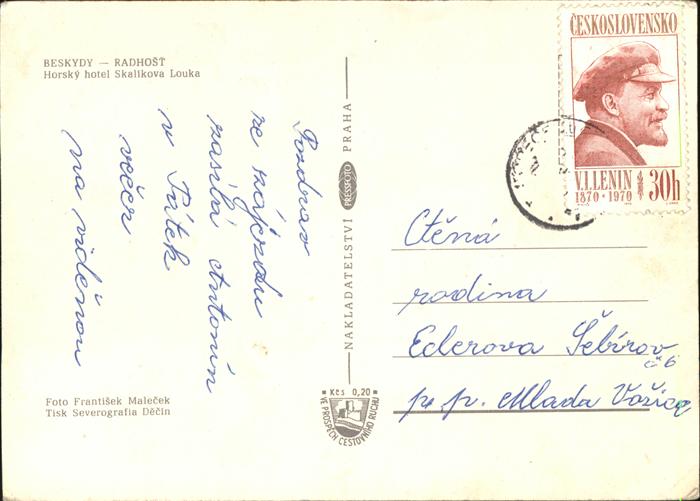 BESKYDY — RADHOŠŤ
Horský hotel Skalíkova Louka
Pozdrav
ze zájezdu
zasílá Antonín
v Pátek
večer
na viděnou
Foto František Maleček
Tisk Severografia Děčín
NAKLADATELSTVÍ PRESSFOTO PRAHA
Kčs 0,20
VE PROSPĚCH CESTOVNÍHO RUCHU
ČESKOSLOVENSKO
V.I.LENIN
1870 • 1970
30h
Ctěná
rodina
Ederova Šebírov
č 6
p. p. Mladá Vožice